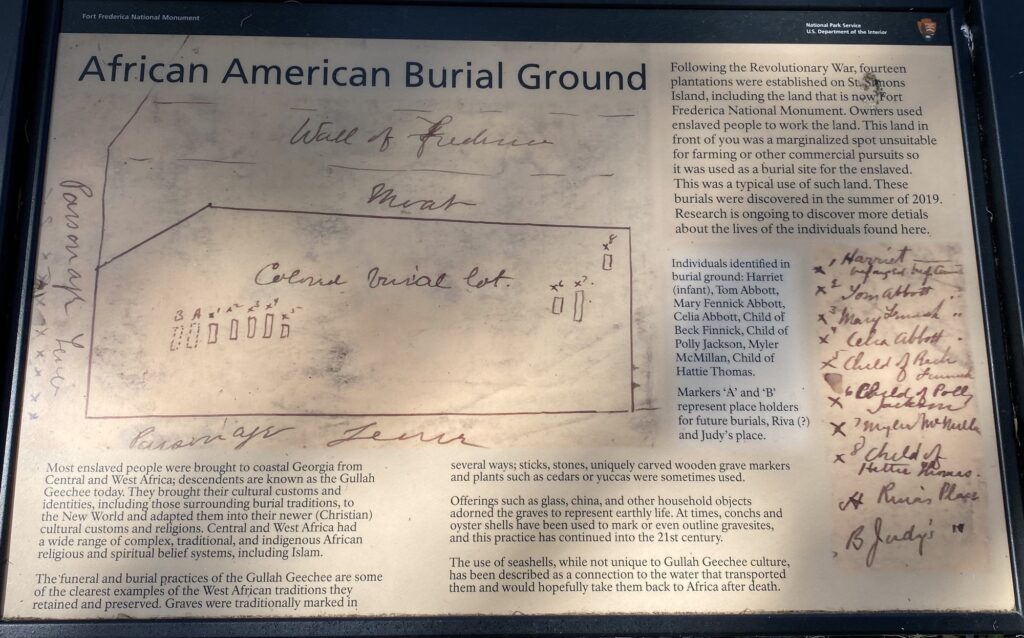 Fort Frederica National Monument
National Park Service
U.S. Department of the Interior
African American Burial Ground
Wall of Frederica
Moat
Parsonage Fence
Colored burial lot.
B A x1 x2 x3 x4 x5
x6 x7
x8
Parsonage Fence
Following the Revolutionary War, fourteen
plantations were established on St. Simons
Island, including the land that is now Fort
Frederica National Monument. Owners used
enslaved people to work the land. This land in
front of you was a marginalized spot unsuitable
for farming or other commercial pursuits so
it was used as a burial site for the enslaved.
This was a typical use of such land. These
burials were discovered in the summer of 2019.
Research is ongoing to discover more detials
about the lives of the individuals found here.
Individuals identified in
burial ground: Harriet
(infant), Tom Abbott,
Mary Fennick Abbott,
Celia Abbott, Child of
Beck Finnick, Child of
Polly Jackson, Myler
McMillan, Child of
Hattie Thomas.
Markers 'A' and 'B'
represent place holders
for future burials, Riva (?)
and Judy's place.
x 1 Harriet
x 2 Tom Abbott "
x 3 Mary "
x 4 Celia Abbott "
x 5 Child of Beck
x 6 Child of Polly
Jackson
x 7 Myler McMillan
x 8 Child of
Hettie Thomas.
A Riva's Place
B Judy's "
Most enslaved people were brought to coastal Georgia from
Central and West Africa; descendents are known as the Gullah
Geechee today. They brought their cultural customs and
identities, including those surrounding burial traditions, to
the New World and adapted them into their newer (Christian)
cultural customs and religions. Central and West Africa had
a wide range of complex, traditional, and indigenous African
religious and spiritual belief systems, including Islam.
The funeral and burial practices of the Gullah Geechee are some
of the clearest examples of the West African traditions they
retained and preserved. Graves were traditionally marked in
several ways; sticks, stones, uniquely carved wooden grave markers
and plants such as cedars or yuccas were sometimes used.
Offerings such as glass, china, and other household objects
adorned the graves to represent earthly life. At times, conchs and
oyster shells have been used to mark or even outline gravesites,
and this practice has continued into the 21st century.
The use of seashells, while not unique to Gullah Geechee culture,
has been described as a connection to the water that transported
them and would hopefully take them back to Africa after death.